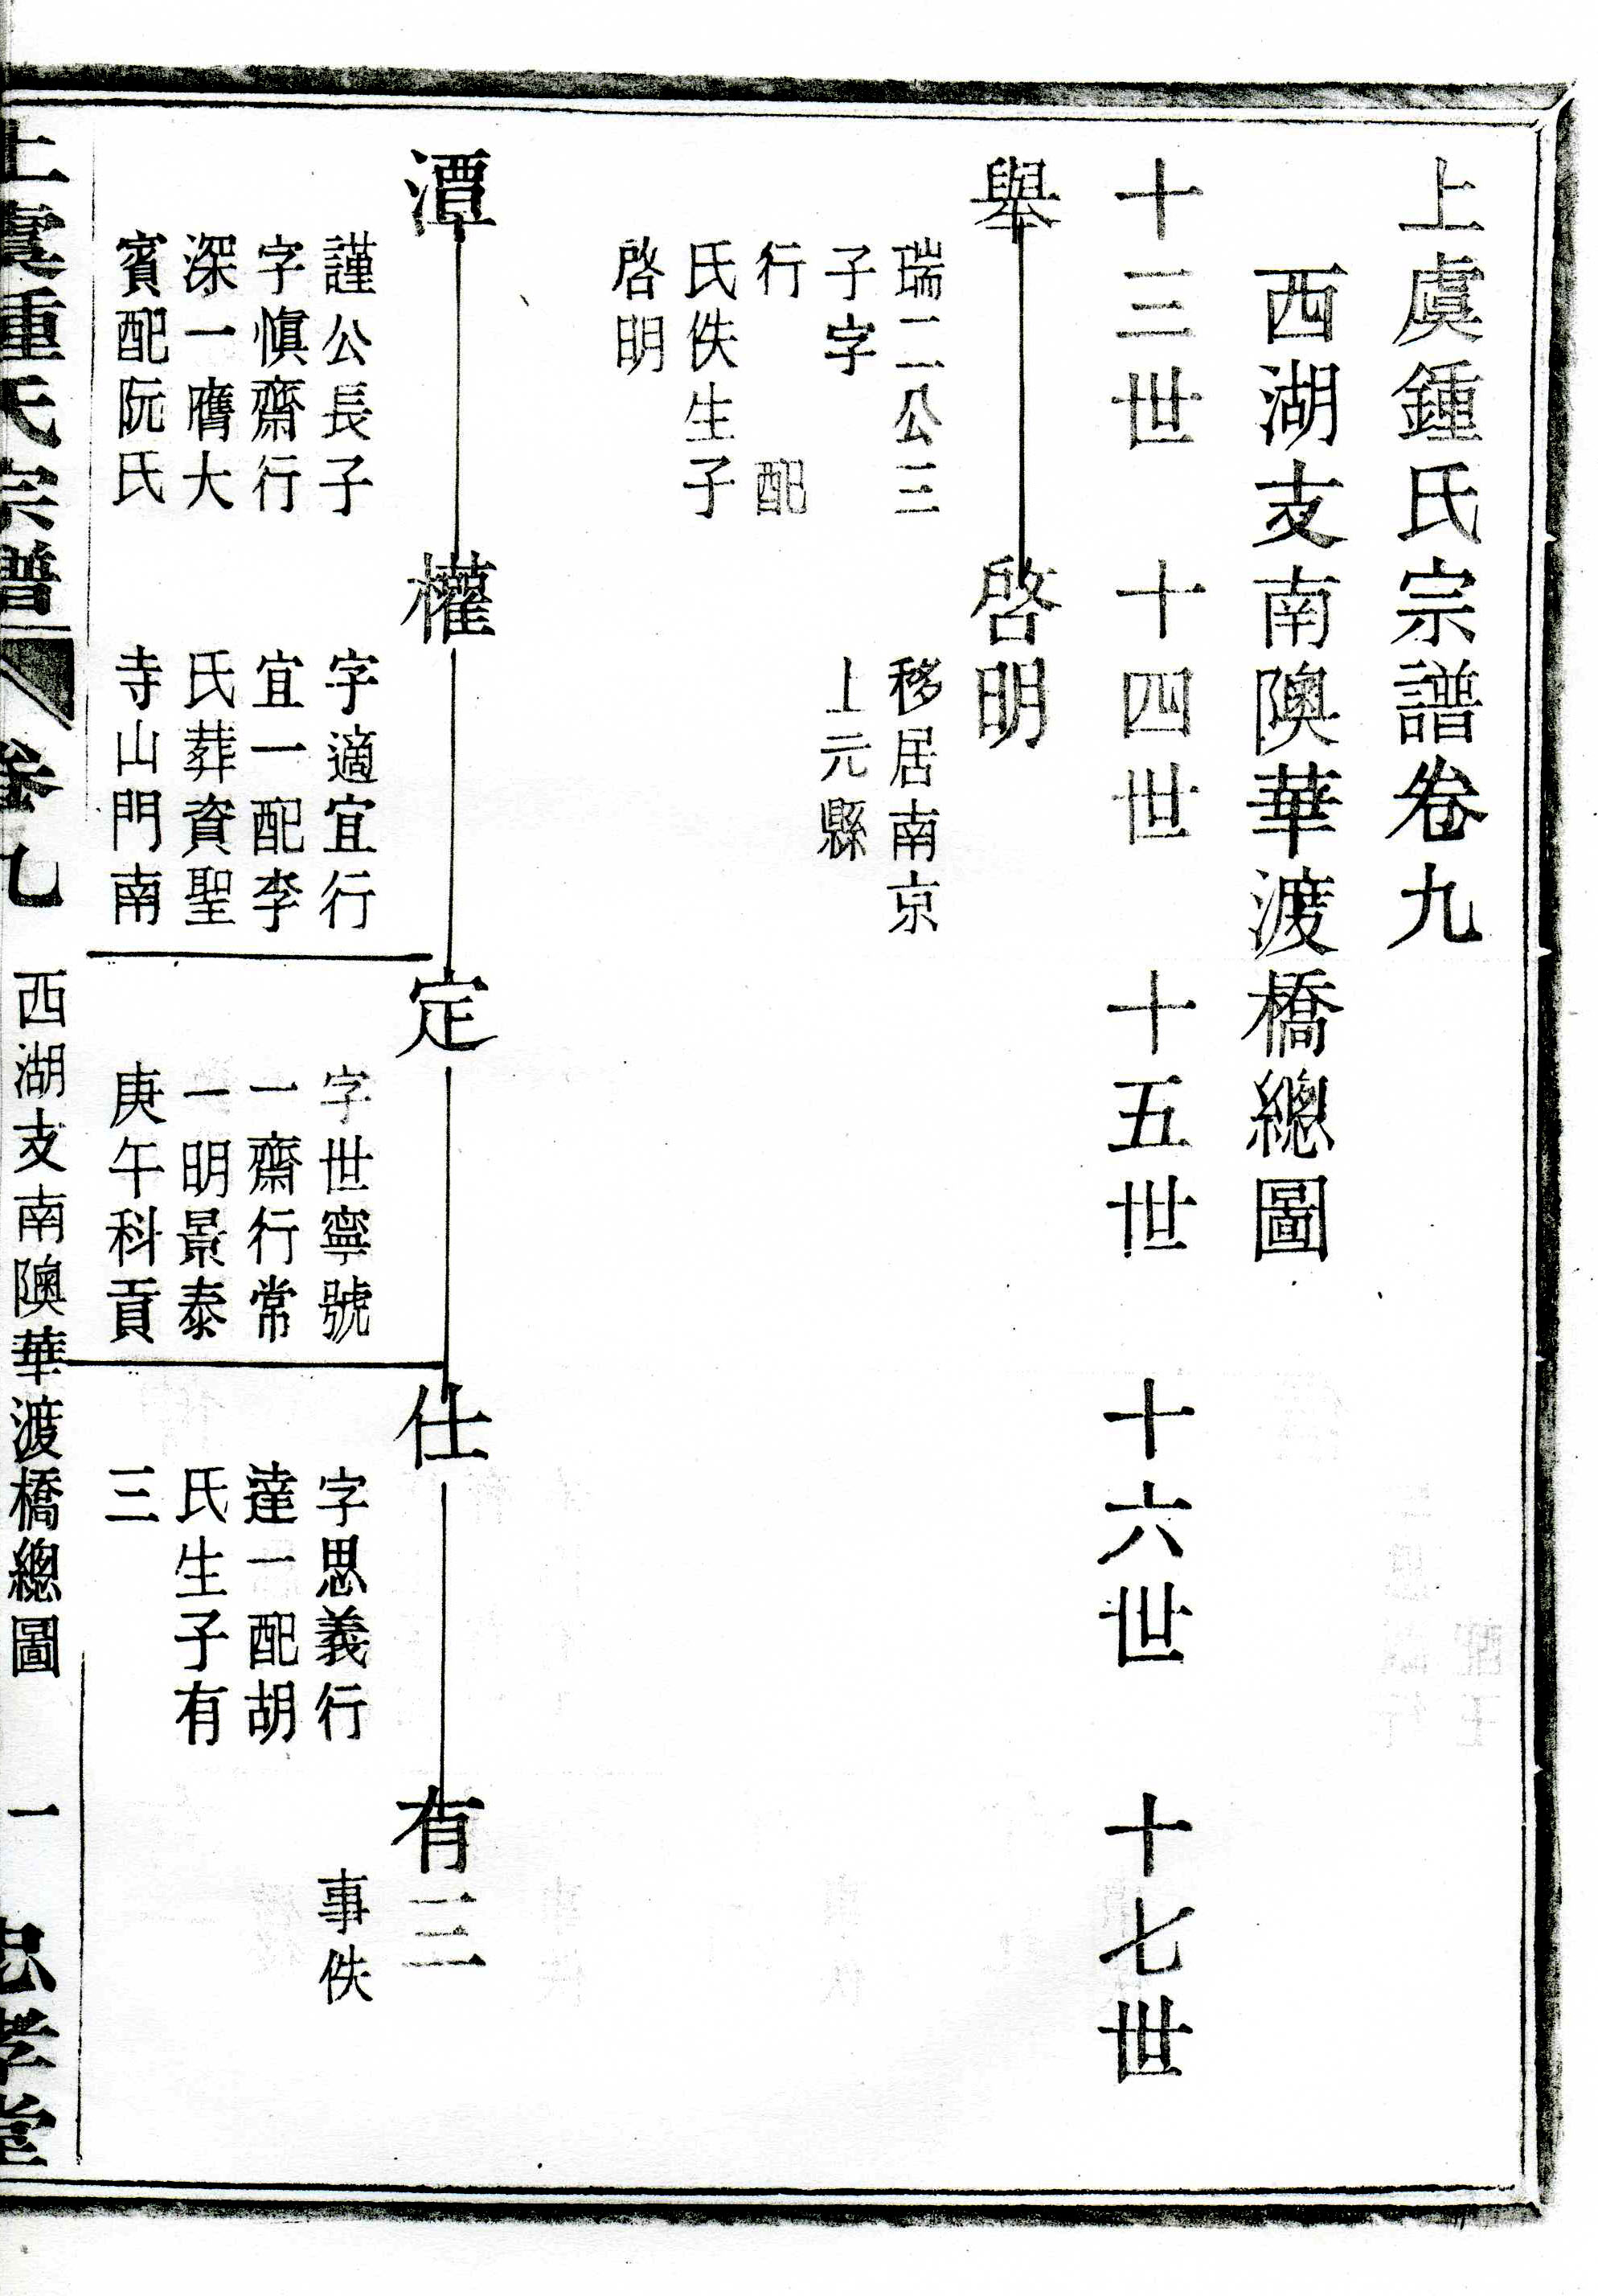 上虞鍾氏宗譜卷九
西湖支南隩華渡橋總圖
十三世 十四世 十五世 十六世 十七世
舉 啓明
瑞二公三
子字
行 配
氏佚生子
啓明
移居南京
上元縣
潭 權 定 仕 有三
謹公長子
字愼齋行
深一膺大
賓配阮氏
字適宜行
宜一配李
氏葬資聖
寺山門南
字世寧號
一齋行常
一明景泰
庚午科貢
字思義行
達一配胡
氏生子有
三
事佚
上虞鍾氏宗譜 卷九 西湖支南隩華渡橋總圖 一 忠孝堂